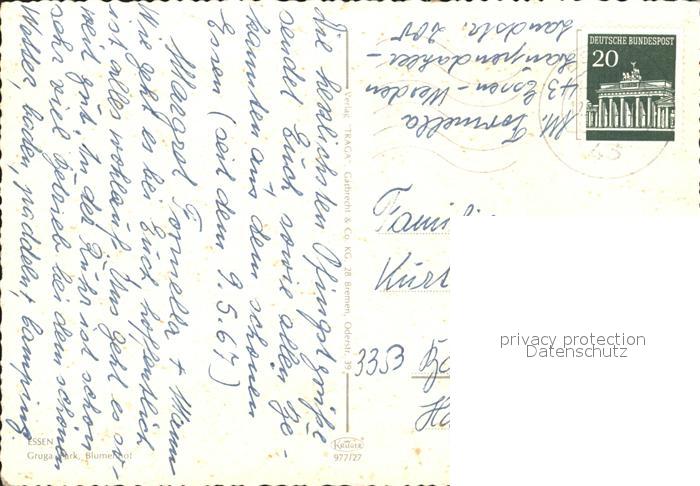 Die herzlichsten Pfingstgrüße
sendet Euch sowie allen Be-
kannten aus dem schönen
Essen (seit dem 9.5.67)
Margret Formella + Mann
Wie geht es bei Euch hoffentlich
ist alles wohlauf. Uns geht es so-
weit gut. In der Ruhr ist schon
sehr viel Betrieb bei dem schönen
Wetter, baden, paddeln, camping.
ESSEN
Gruga Park, Blumenhof
Verlag "KRAGA" Gatbrecht & Co. KG, 28 Bremen, Oderstr. 39
KRÜGER
977/27
M. Formella
43 Essen - Werden
Landstr. 205
DEUTSCHE BUNDESPOST
20
43
Famili
Kurt
3353
privacy protection
Datenschutz